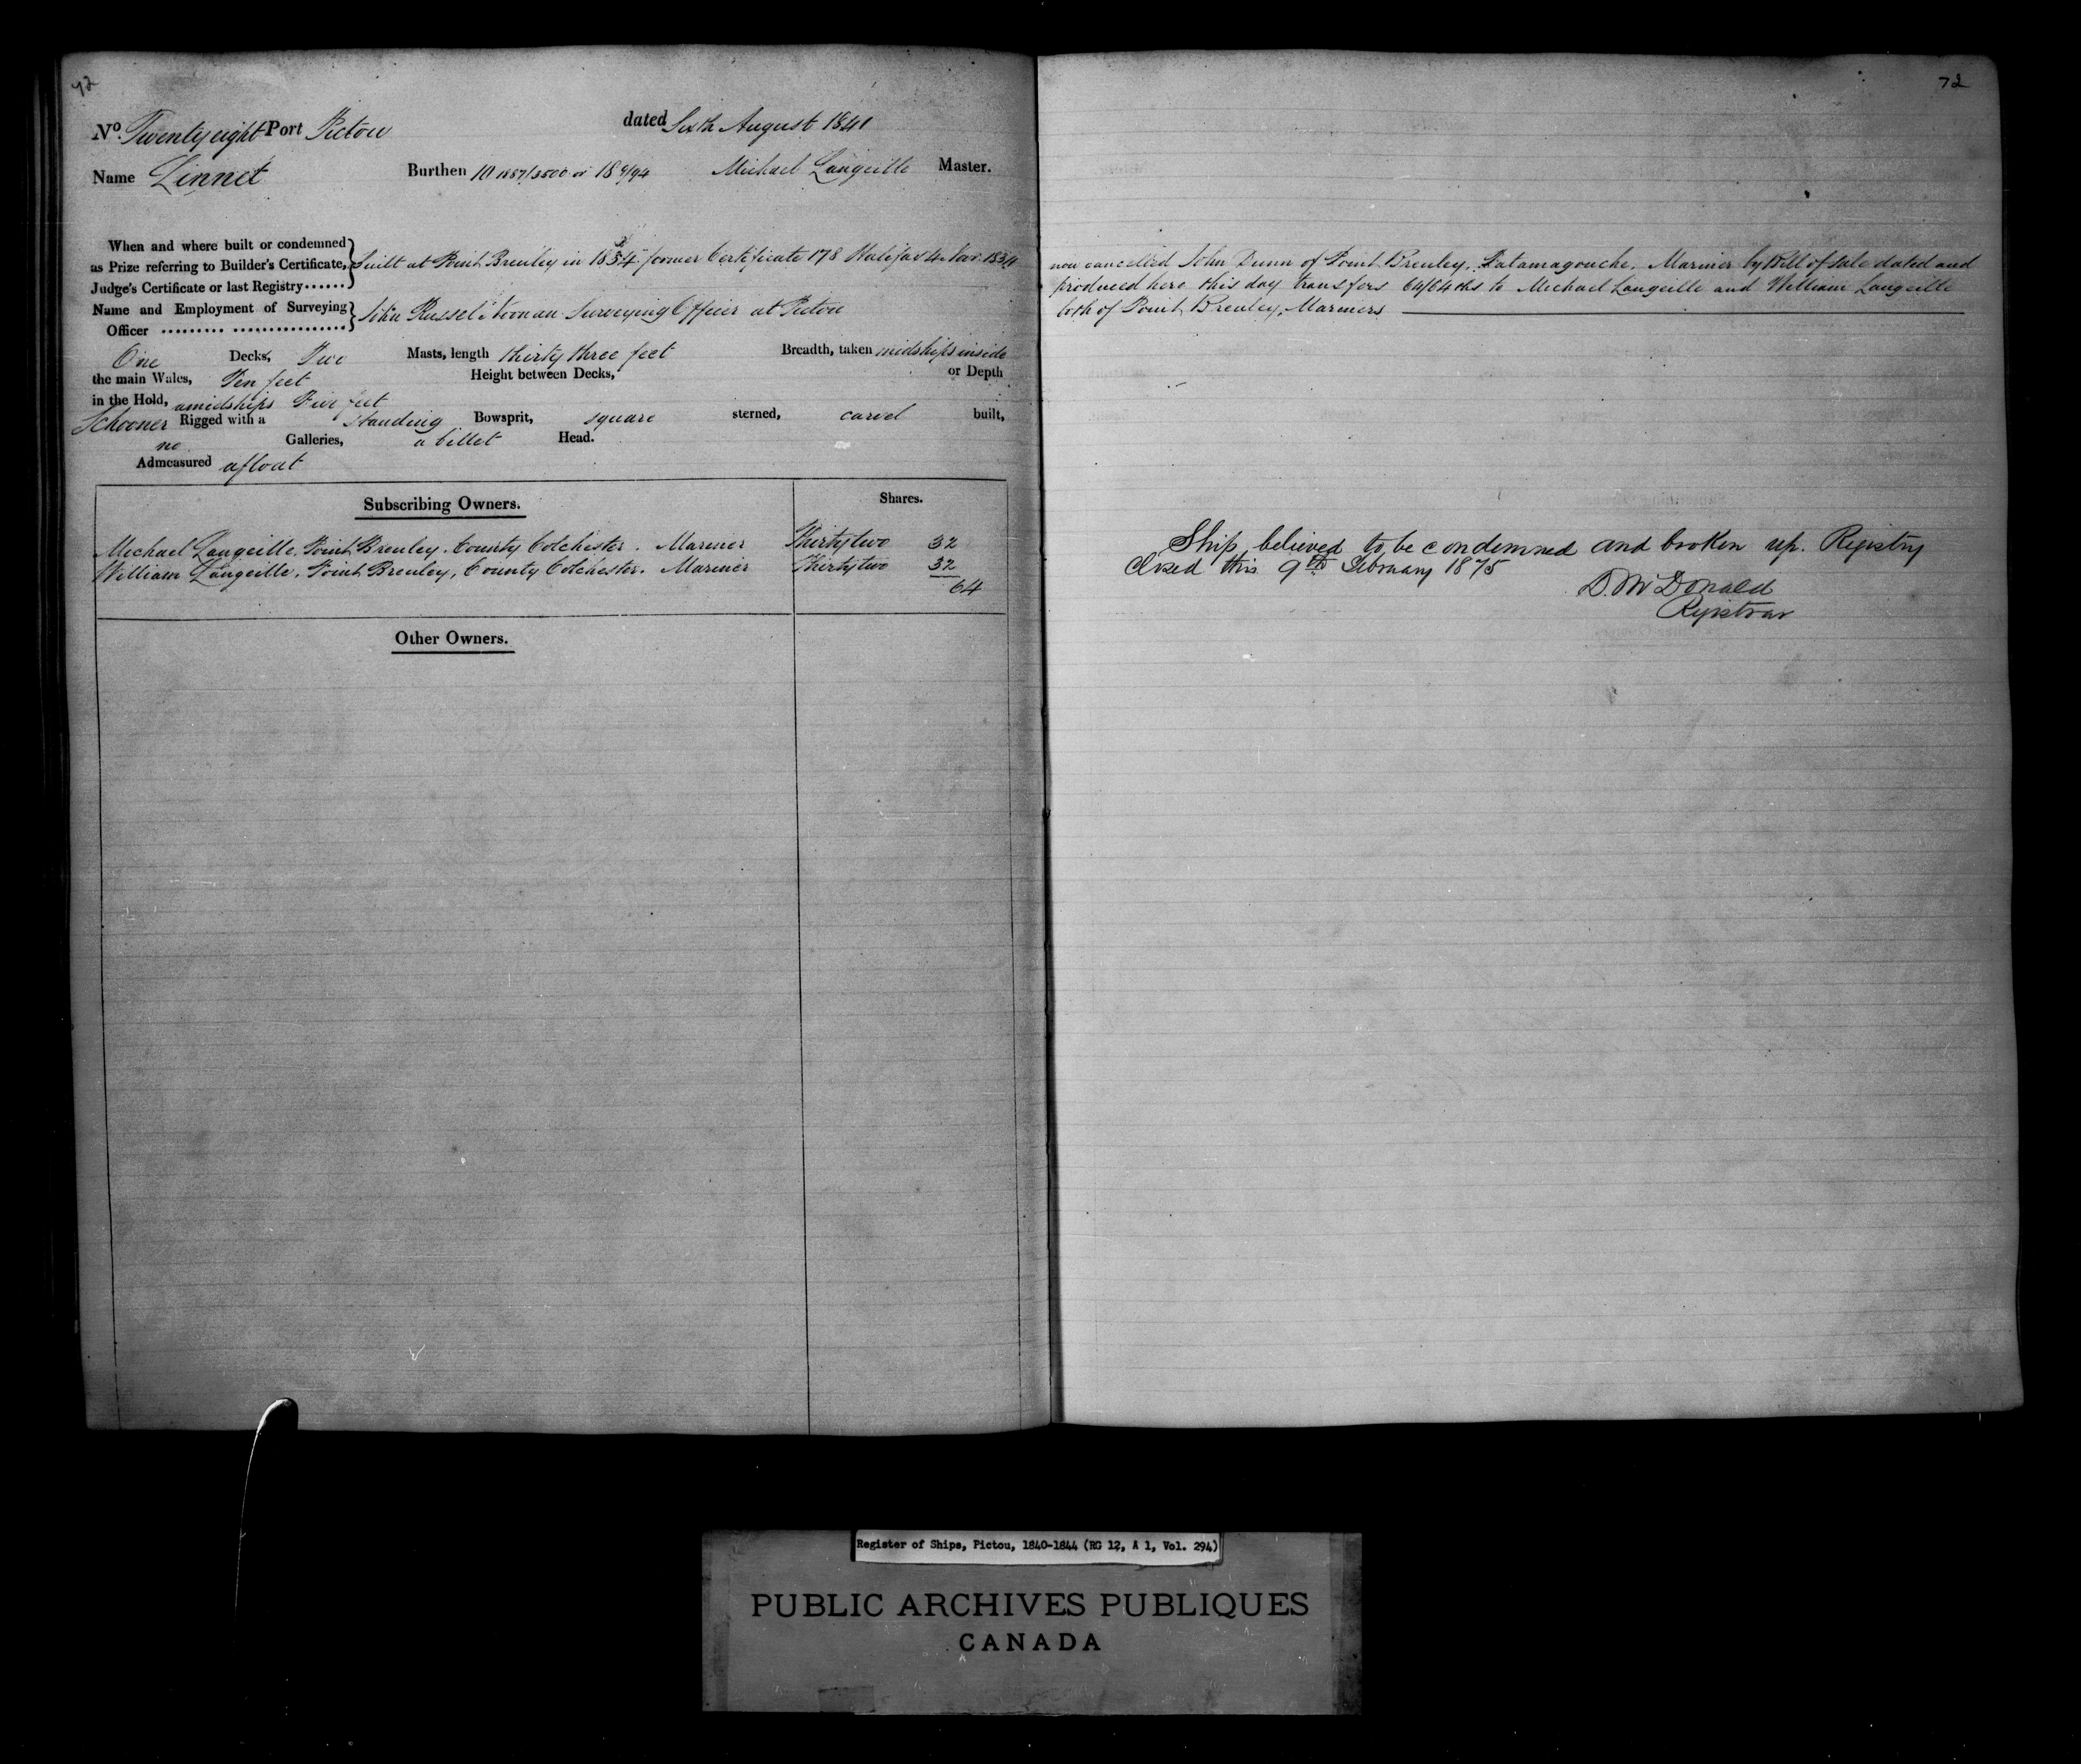 72
No. Twenty eight Port Pictou dated Sixth August 1841
Name Linnet Burthen 10 1887/3500 or 18 9/94 Michael Langeille Master.
When and where built or condemned
as Prize referring to Builder's Certificate, Built at Point Brenley in 1834 former Certificate 178 Halifax 4 Nov. 1834
Judge's Certificate or last Registry......
Name and Employment of Surveying
Officer ......... ................ John Russel Noonan Surveying Officer at Pictou
One Decks, Two Masts, length thirty three feet Breadth, taken midships inside
the main Wales, Ten feet Height between Decks, or Depth
in the Hold, amidships Five feet
Schooner Rigged with a Standing Bowsprit, square sterned, carvel built,
no Galleries, a billet Head.
Admeasured afloat
Subscribing Owners. Shares.
Michael Langeille, Point Brenley, County Colchester. Mariner Thirty two 32
William Langeille, Point Brenley, County Colchester. Mariner Thirty two 32
64
Other Owners.
72
now cancelled John Dunn of Point Brenley, Tatamagouche, Mariner by Bill of Sale dated and
produced here this day transfers 64/64ths to Michael Langeille and William Langeille
both of Point Brenley, Mariners
Ship believed to be condemned and broken up. Registry
Closed this 9th February 1875
D. McDonald
Registrar
Register of Ships, Pictou, 1840-1844 (RG 12, A 1, Vol. 294)
PUBLIC ARCHIVES PUBLIQUES
CANADA